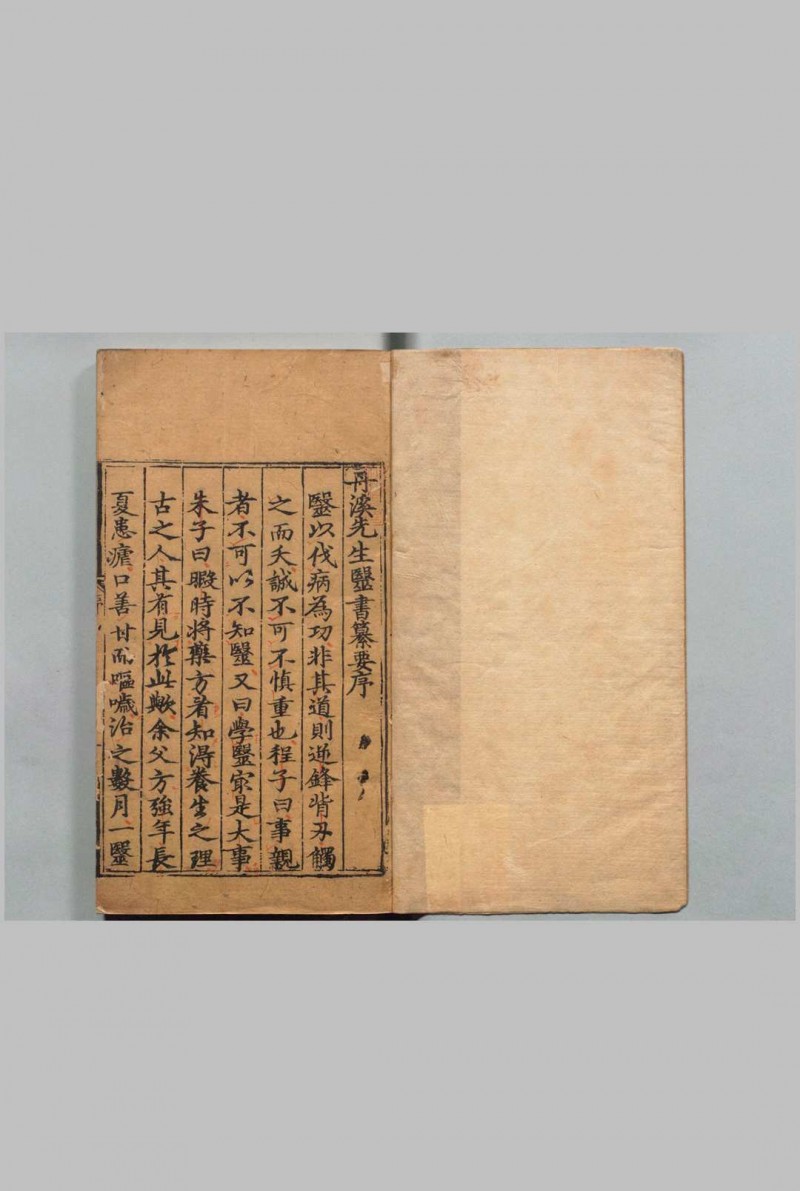 丹溪先生醫書纂要序
毉以伐病為功非其道則逆鋒背刃觸
之而夭誠不可不慎重也程子曰事親
者不可以不知毉又曰學毉家是大事
朱子曰暇時將藥方看知得養生之理
古之人其有見於此歟余父方強年長
夏患瘧口善甘而嘔噦治之數月一毉
序